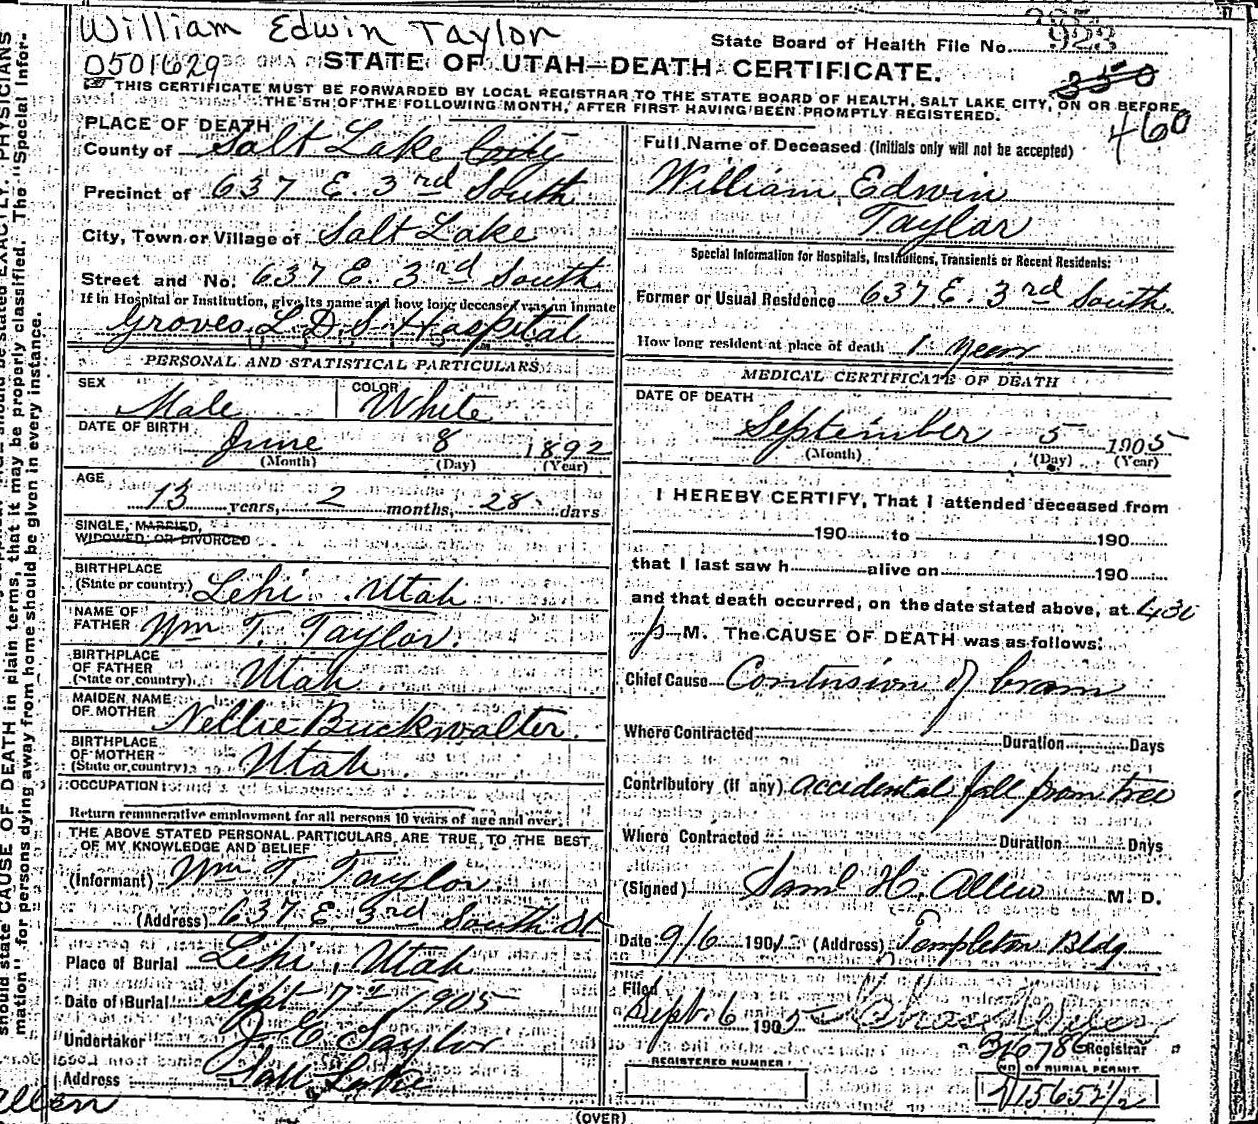 William Edwin Taylor
0501629
State Board of Health File No. 923
350
460
STATE OF UTAH—DEATH CERTIFICATE.
THIS CERTIFICATE MUST BE FORWARDED BY LOCAL REGISTRAR TO THE STATE BOARD OF HEALTH, SALT LAKE CITY, ON OR BEFORE
THE 5TH OF THE FOLLOWING MONTH, AFTER FIRST HAVING BEEN PROMPTLY REGISTERED.
PLACE OF DEATH
County of Salt Lake City
Precinct of 637 E. 3rd South
City, Town or Village of Salt Lake
Street and No. 637 E. 3rd South
If in Hospital or Institution, give its name and how long deceased was an inmate
Groves L D S Hospital
PERSONAL AND STATISTICAL PARTICULARS
SEX Male COLOR White
DATE OF BIRTH June 8 1892
(Month) (Day) (Year)
AGE
13 years, 2 months, 28 days
SINGLE, MARRIED,
WIDOWED, OR DIVORCED
BIRTHPLACE
(State or country) Lehi Utah
NAME OF
FATHER Wm T. Taylor.
BIRTHPLACE
OF FATHER
(State or country) Utah
MAIDEN NAME
OF MOTHER Nellie Buckwalter.
BIRTHPLACE
OF MOTHER
(State or country) Utah
OCCUPATION
Return remunerative employment for all persons 10 years of age and over
THE ABOVE STATED PERSONAL PARTICULARS, ARE TRUE, TO THE BEST
OF MY KNOWLEDGE AND BELIEF
(Informant) Wm T. Taylor.
(Address) 637 E 3rd South St
Place of Burial Lehi, Utah
Date of Burial Sept 7th 1905
Undertaker J. E Taylor
Address Salt Lake
Full Name of Deceased (Initials only will not be accepted)
William Edwin
Taylor
Special Information for Hospitals, Institutions, Transients or Recent Residents:
Former or Usual Residence 637 E. 3rd South.
How long resident at place of death 1 year
MEDICAL CERTIFICATE OF DEATH
DATE OF DEATH
September 5 1905
(Month) (Day) (Year)
I HEREBY CERTIFY, That I attended deceased from
190 to 190
that I last saw h alive on 190
and that death occurred, on the date stated above, at 430
p M. The CAUSE OF DEATH was as follows:
Chief Cause Contusion of brain
Where Contracted Duration Days
Contributory (if any) accidental fall from tree
Where Contracted Duration Days
(Signed) Saml H. Allen M. D.
Date 9/6 1905 (Address) Templeton Bldg
Filed
Sept. 6 1905
Registrar
REGISTERED NUMBER
NO OF BURIAL PERMIT
(OVER)
should state CAUSE OF DEATH in plain terms, that it may be properly classified. The "Special Infor-
mation" for persons dying away from home should be given in every instance.
allen